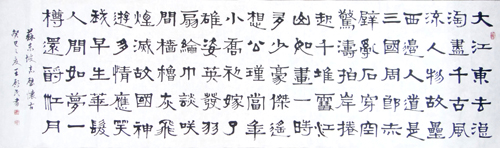 大江東去浪
淘盡千古風
流人物故壘
西邊人道是
三國周郎赤
壁亂石穿空
驚濤拍岸捲
起千堆雪江
山如畫一時
多少豪傑遙
想公瑾當年
小喬初嫁了
雄姿英發羽
扇綸巾談笑
間檣櫓灰飛
煙滅故國神
遊多情應笑
我早生華髮
人生如夢一
樽還酹江月
蘇東坡赤壁懷古
癸巳